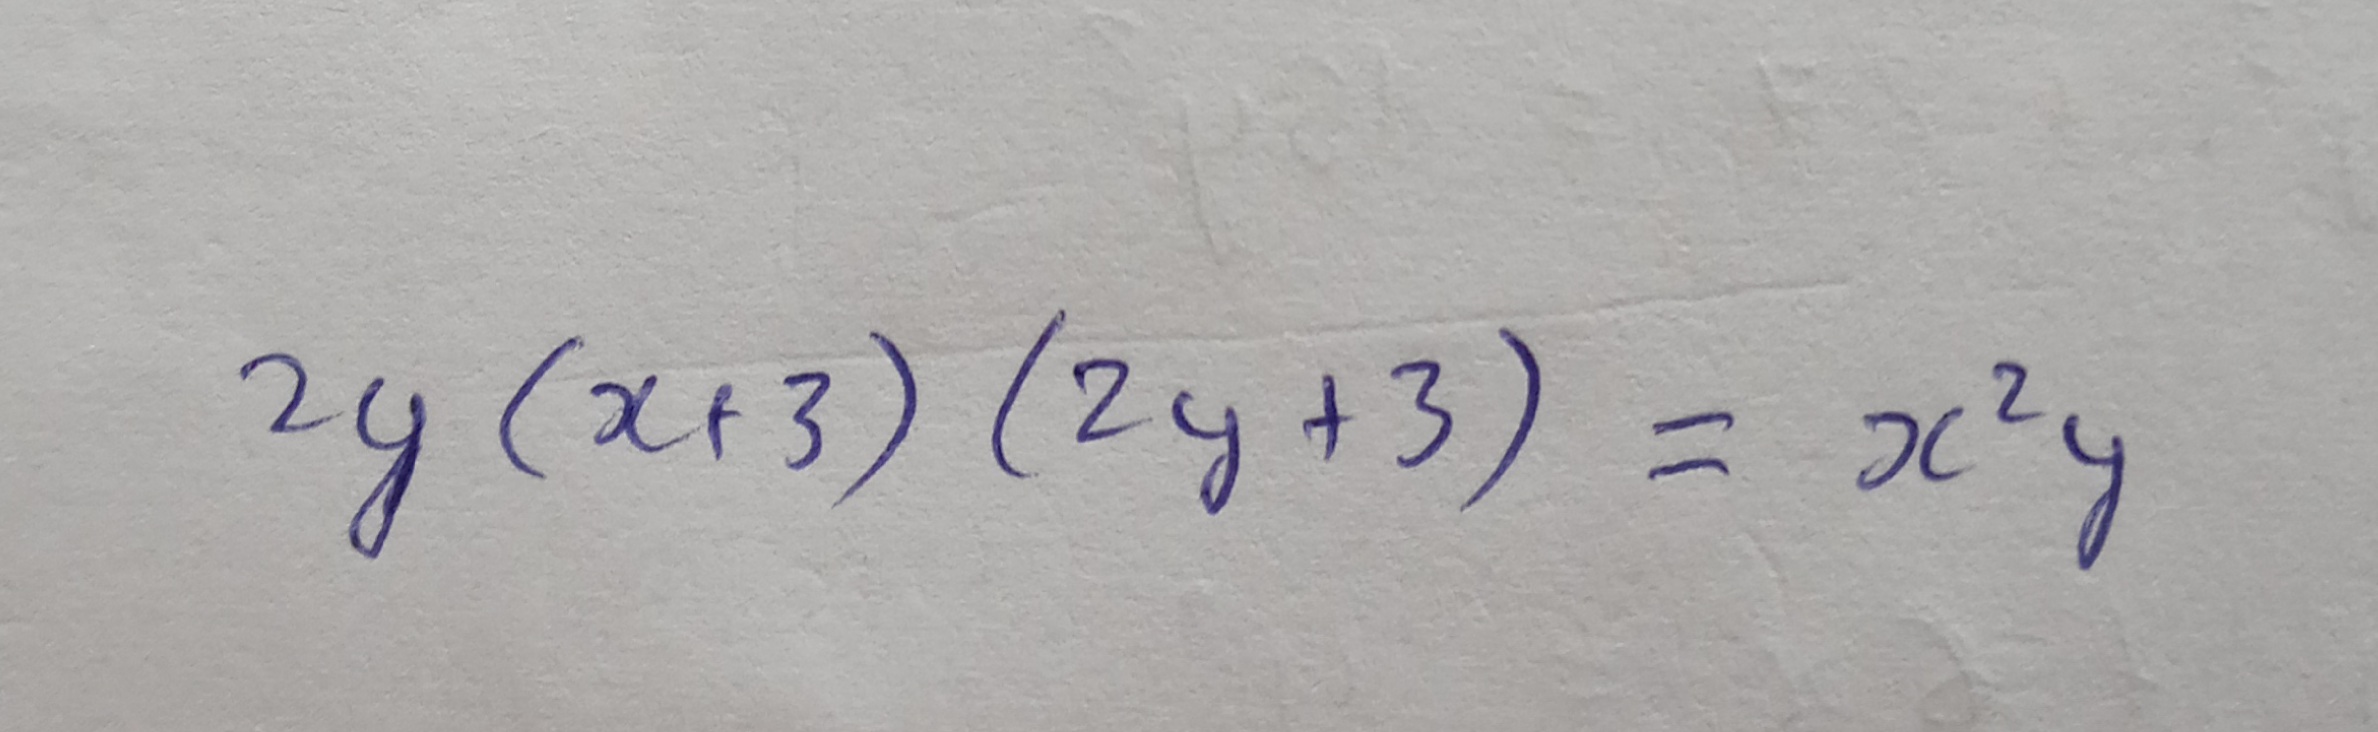 2y (x+3) (2y+3) = x²y